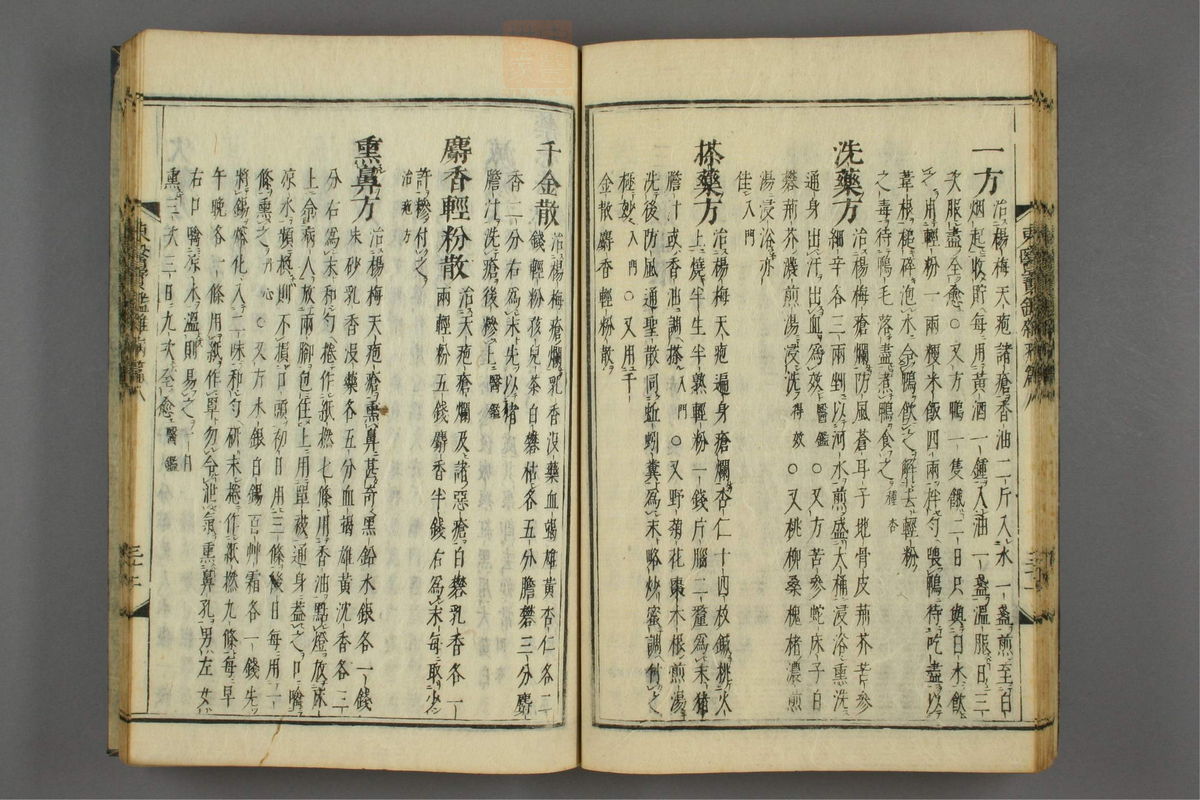 一方治楊梅天疱諸瘡香油二斤入水一盞煎至白
烟起收貯每用黃酒一鍾入油一盞溫服日三
次服盡全愈○又方鴨一隻餓二日只與白水飲
之用輕粉一兩粳米飯四兩拌勻喂鴨待吃盡以
葦根槌碎泡水令鴨飲之解去輕粉
之毒待鴨毛落盡煮鴨食之種杏
洗藥方治楊梅瘡爛防風蒼耳子地骨皮荊芥苦參
細辛各三兩剉以河水煎盛大桶浸浴熏洗
通身出汗出血爲效醫鑑○又方苦參蛇床子白
礬荊芥濃煎湯浸洗得效○又桃柳桑槐楮濃煎
湯浸浴亦
佳入門
搽藥方治楊梅天疱遍身瘡爛杏仁十四枚鍼桃火
上燒半生半熟輕粉一錢片腦二釐爲末猪
膽汁或香油調搽入門○又野菊花棗木根煎湯
洗後防風通聖散同蚯蚓糞爲末略炒蜜調付之
極妙入門○又用千
金散麝香輕粉散
千金散治楊梅瘡爛乳香沒藥血竭雄黃杏仁各二
錢輕粉孩兒茶白礬枯各五分膽礬三分麝
香二分右爲末先以猪
膽汁洗瘡後糝上醫鑑
麝香輕粉散治天疱瘡爛及諸惡瘡白礬乳香各一
兩輕粉五錢麝香半錢右爲末每取少
許糝付之
治疱方
熏鼻方治楊梅天疱瘡熏鼻甚奇黑鉛水銀各一錢
朱砂乳香沒藥各五分血竭雄黃沈香各三
分右爲末和勻捲作紙撚七條用香油點燈放床
上令病人放兩脚包住上用單被通身蓋之口噙
凉水頻換則不損口齒初日用三條後日每用一
條熏之丹心○又方水銀白錫百艸霜各一錢先
將錫熔化入二味和勻研末捲作紙撚九條每早
午晚各一條用紙作罩勿令泄氣熏鼻孔男左女
右口噙凉水溫則易之一日
熏三次三日九次全愈醫鑑
東醫寶鑑雜病篇八
東醫寶鑑雜病篇八